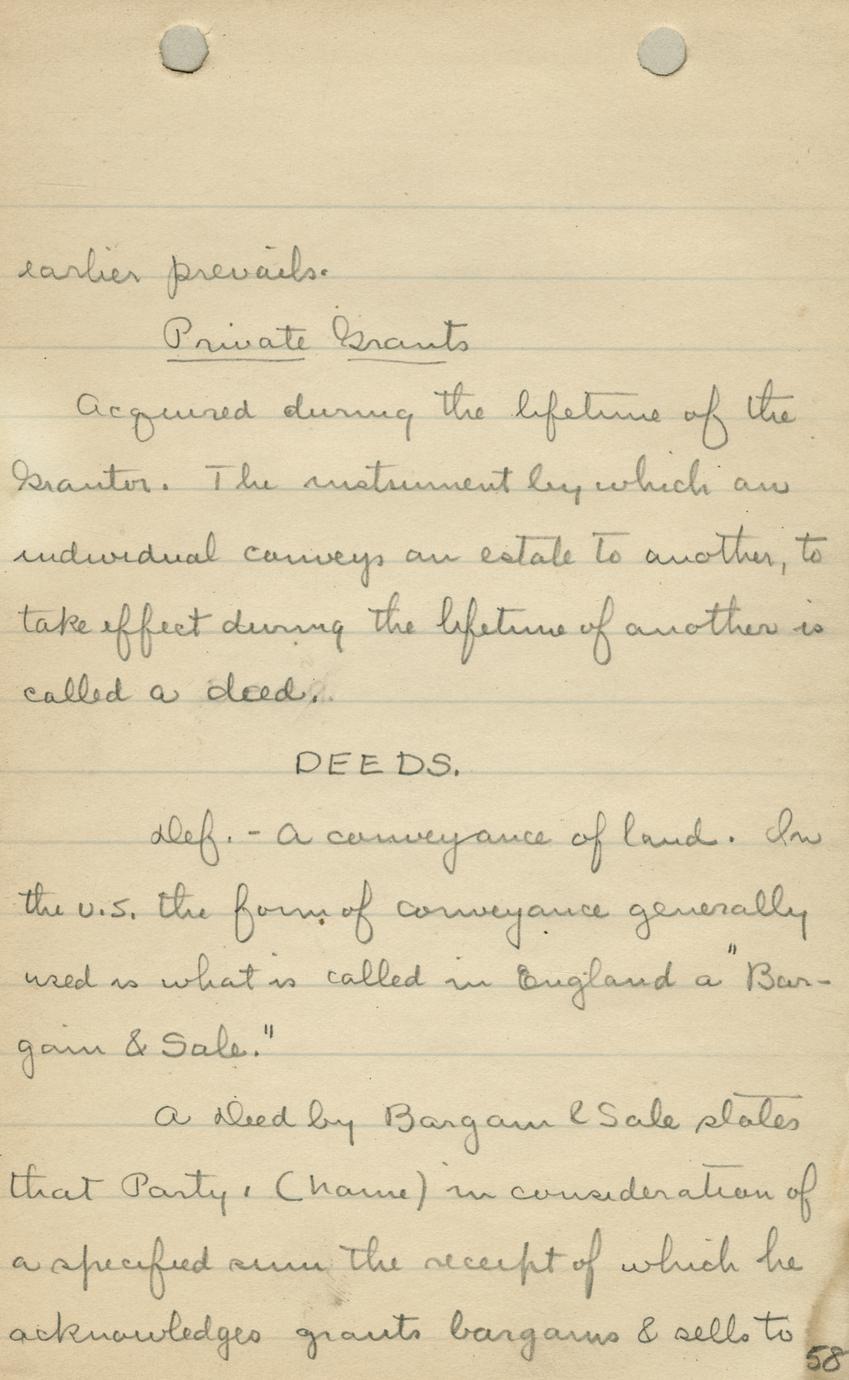 earlier prevails.
Private Grants
Acquired during the lifetime of the
Grantor. The instrument by which an
individual conveys an estate to another, to
take effect during the lifetime of another is
called a deed.
DEEDS.
Def. - A conveyance of land. In
the U.S. the form of conveyance generally
used is what is called in England a "Bar-
gain & Sale."
A Deed by Bargain & Sale states
that Party, (name) in consideration of
a specified sum the receipt of which he
acknowledges grants bargains & sells to
58